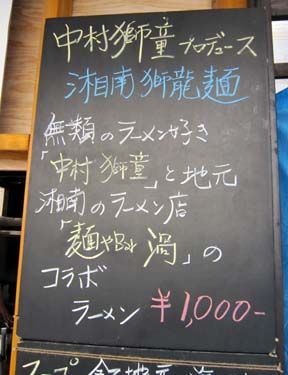 中村獅童プロデュース
湘南獅龍麺
無類のラーメン好き
「中村獅童」と地元
湘南のラーメン店
「麺やBar 渦」の
コラボ
ラーメン ¥1,000-